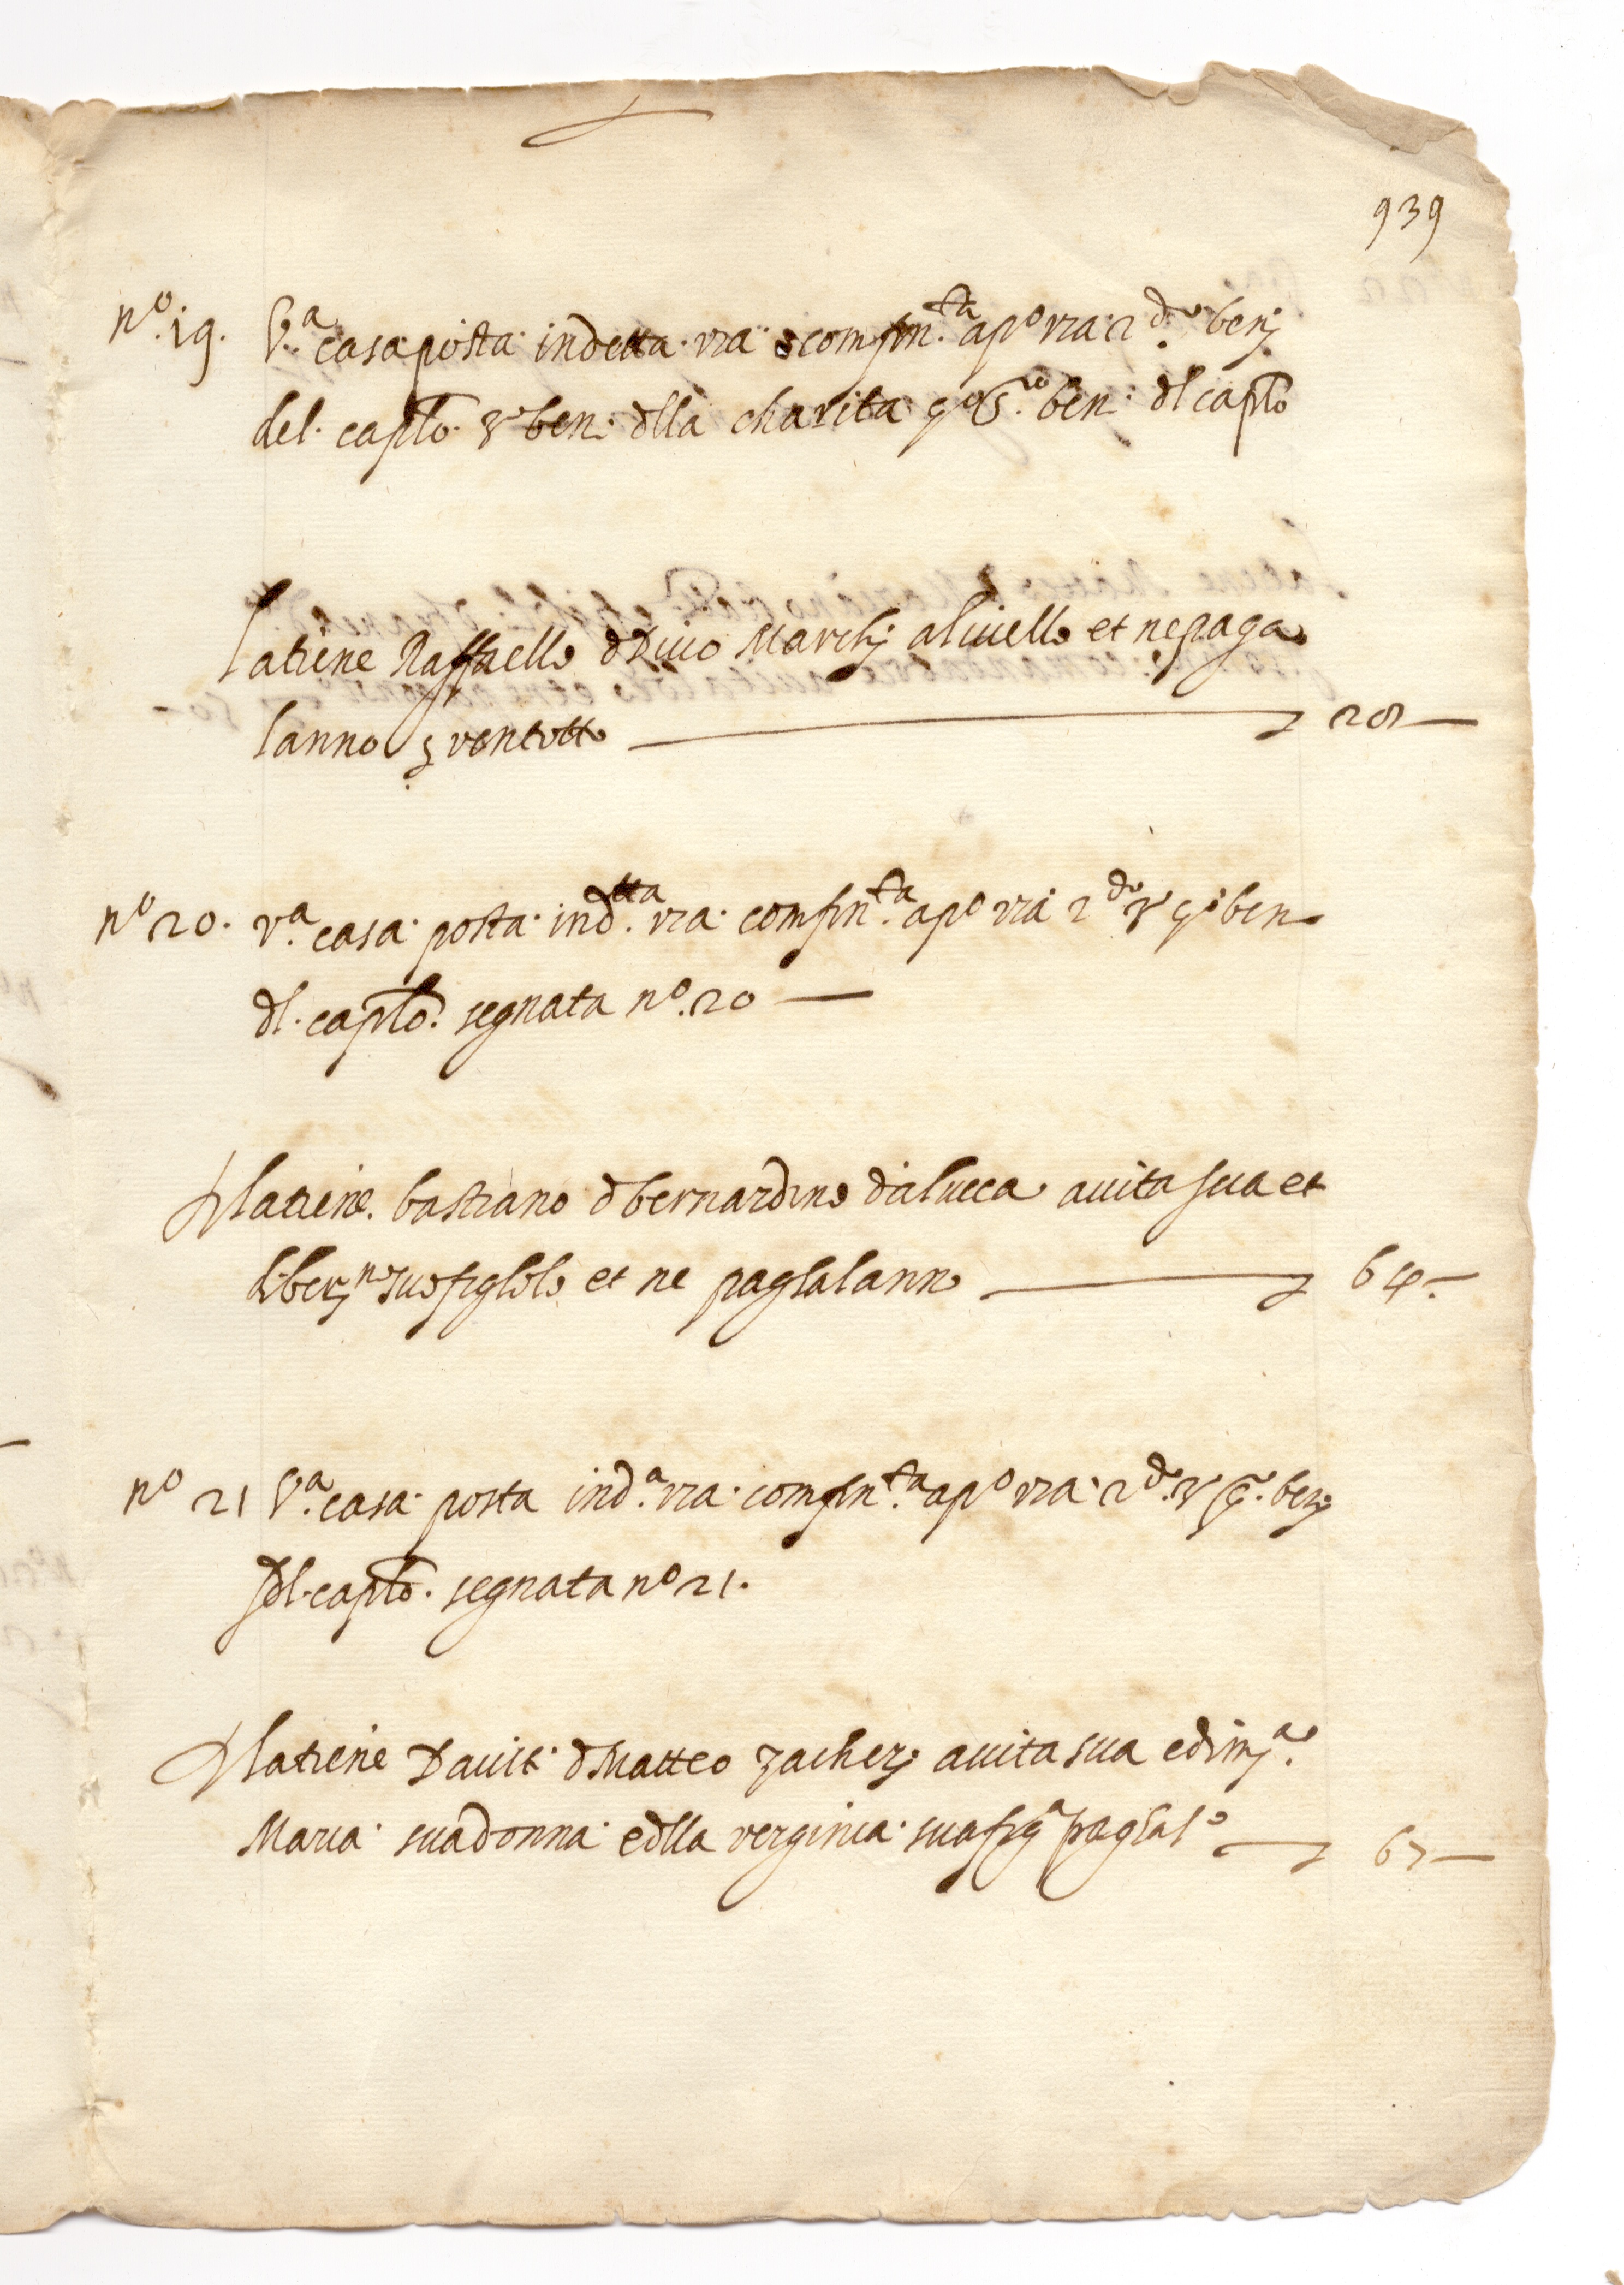 939
nº. 19. Vª. casa posta in detta via confinta. a pº via 2dº benj
del capto. 3º ben. dlla charita 4º 5to ben. dl capto
la tiene Raffaello d Diuo Marchj a liuello et ne paga
lanno ventotto 28 —
nº 20. vª. casa posta in dtta. via confinta. a pº via 2dº 3º 4º ben
dl. capto. segnata nº. 20 —
la tiene. bastiano d bernardino da lucca a uita sua et
suo figlolo et ne pagha lanno 64. —
nº 21 Vª. casa posta in dª. via confinta. a pº via 2dº. 3º 4º. benj
dl capto. segnata nº 21.
la tiene Dauit d Matteo zacherj a uita sua e di mª.
Maria sua donna e dlla verginia sua figª pagha lº 67 —